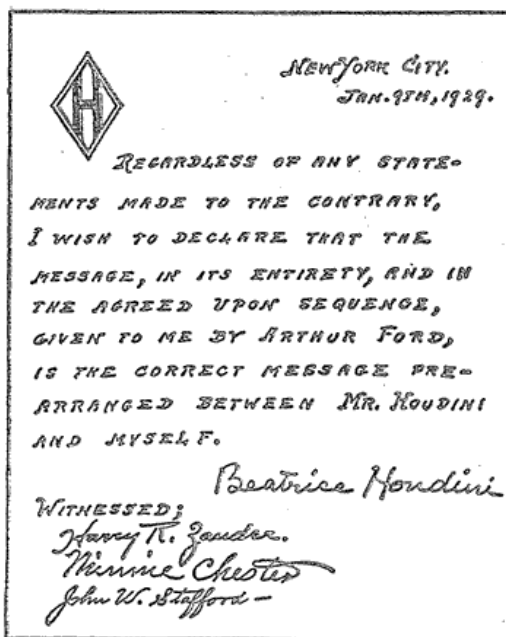 H
NEW YORK CITY.
JAN. 9TH, 1929.
REGARDLESS OF ANY STATE-
MENTS MADE TO THE CONTRARY,
I WISH TO DECLARE THAT THE
MESSAGE, IN ITS ENTIRETY, AND IN
THE AGREED UPON SEQUENCE,
GIVEN TO ME BY ARTHUR FORD,
IS THE CORRECT MESSAGE PRE-
ARRANGED BETWEEN MR. HOUDINI
AND MYSELF.
Beatrice Houdini
WITNESSED;
Harry R. Zander.
Minnie Chester
John W. Stafford-